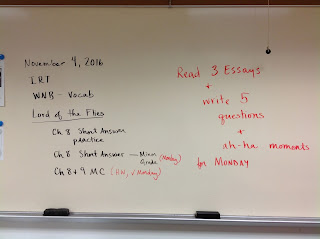 November 4, 2016
IRT
WNB - Vocab
Lord of the Flies
Ch 8 Short Answer
practice
Ch 8 Short Answer — Minor Grade (Monday)
Ch 8 + 9 MC (HW, ✓ Monday)
Read 3 Essays
+
write 5
questions
+
ah-ha moments
for MONDAY